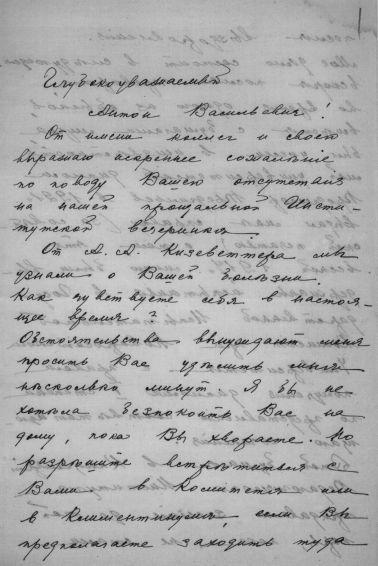 Глубокоуважаемый
Антон Васильевич!
От имени коллег и своего
выражаю искреннее сожаление
по поводу Вашего отсутствия
на нашей прощальной Инсти-
тутской вечеринке.
От А. А. Кизеветтера мы
узнали о Вашей болѣзни.
Как чувствуете себя в настоя-
щее время?
Обстоятельства вынуждают меня
просить Вас удѣлить мнѣ
нѣсколько минут. Я бы не
хотѣла безпокоить Вас на
дому, пока Вы хвораете. Но
разрѣшите встрѣтиться с
Вами в Комитетѣ или
в Клементинумѣ, если Вы
предполагаете заходить туда